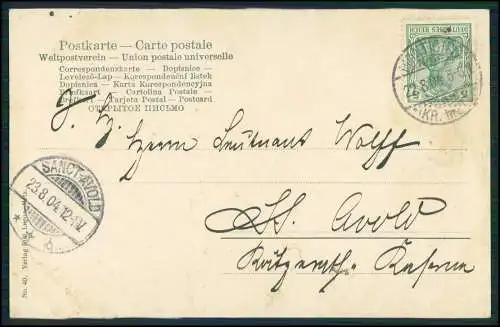 Postkarte — Carte postale
Weltpostverein — Union postale universelle
Correspondenzkarte — Dopisnice —
Levelező-Lap — Korespondenční listek
Dopisnica — Karta Korespondencyjna
Briefkort — Cartolina Postale —
Brefkort — Tarjeta Postal — Postcard
ОТКРЫТОЕ ПИСЬМО
DEUTSCHES REICH
Herrn Leutnant Wolff
St. Avold
Kaserne
SANCT-AVOLD
23.8.04.12-1N.
No. 40. Verlag